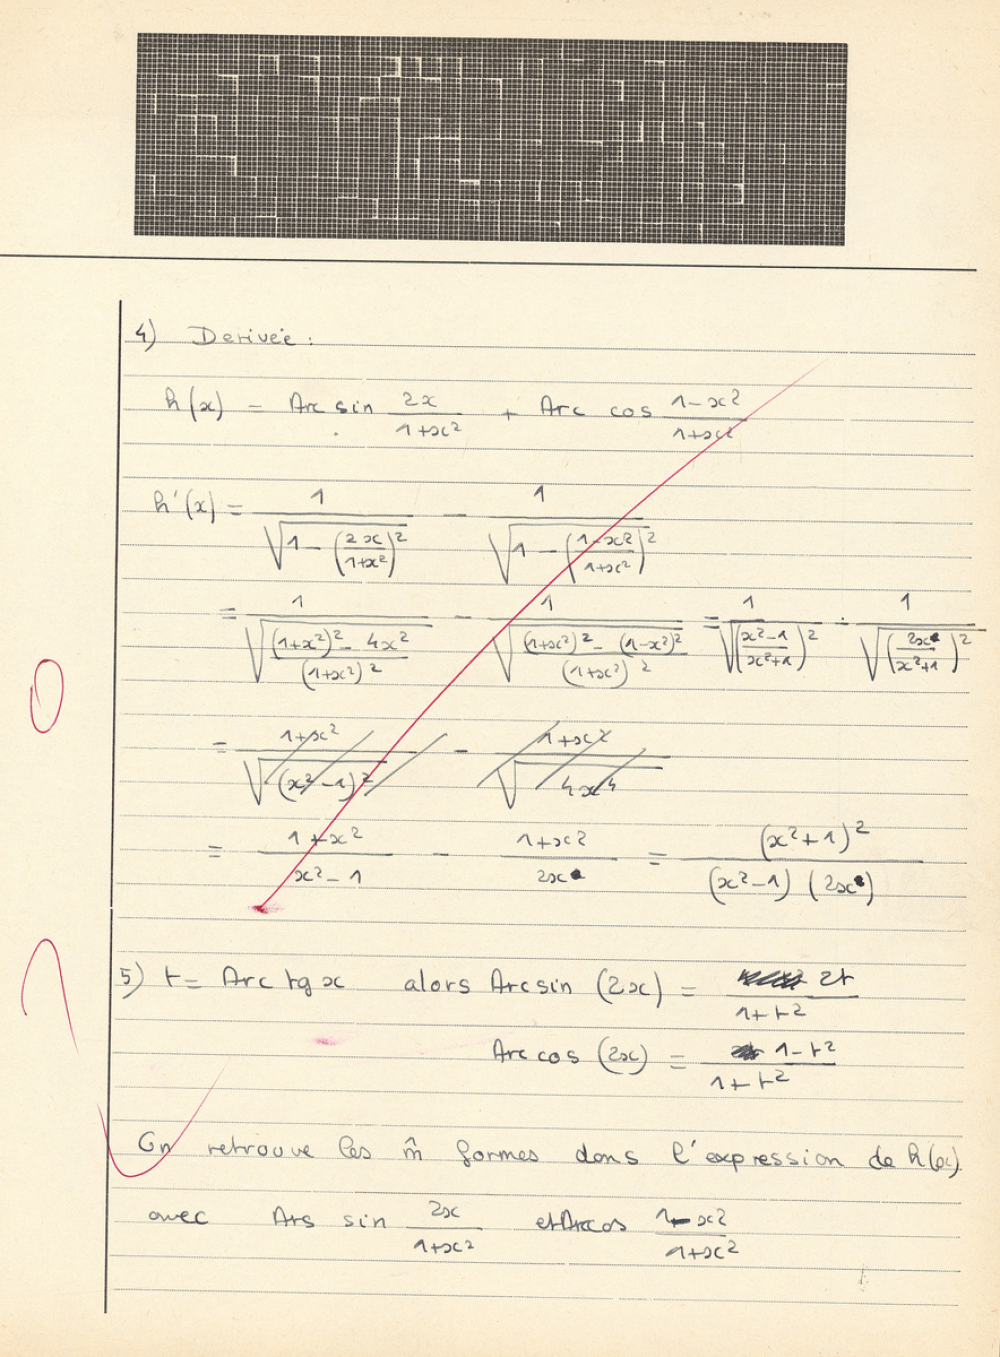 4) Derivée :
h(x) = Arc sin 2x/(1+x²) + Arc cos (1-x²)/(1+x²)
h'(x) = 1/√(1-(2x/(1+x²))²) - 1/√(1-((1-x²)/(1+x²))²)
= 1/√(((1+x²)²-4x²)/(1+x²)²) - 1/√(((1+x²)²-(1-x²)²)/(1+x²)²) = 1/√((x²-1)/(x²+1))² - 1/√(2x/(x²+1))²
0
= (1+x²)/√((x²-1)²) - (1+x²)/√(4x⁴)
= (1+x²)/(x²-1) - (1+x²)/2x = (x²+1)²/((x²-1)(2x))
5) t = Arc tg x alors Arc sin (2x) = 2t/(1+t²)
Arc cos (2x) = (1-t²)/(1+t²)
On retrouve les m̂ formes dans l'expression de h(x)
avec Ars sin 2x/(1+x²) et Arc cos (1-x²)/(1+x²)